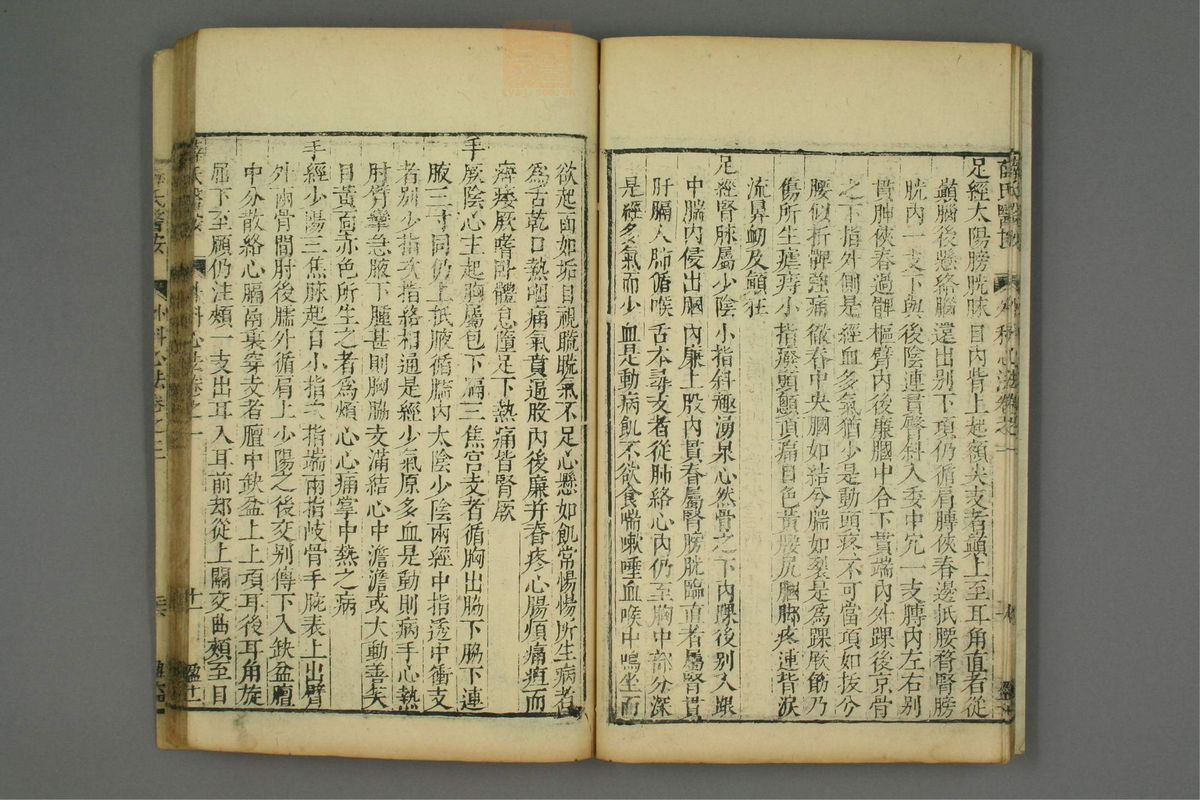 足經太陽膀胱脉目內眥上起額尖支者巓上至耳角直者從
巓腦後懸絡腦還出別下項仍循肩膊俠脊邊抵腰膂腎膀
胱內一支下與後陰連貫臀斜入委中穴一支膊內左右別
貫胂俠脊過髀樞臂內後廉膕中合下貫踹內外踝後京骨
之下指外側是經血多氣猶少是動頭疼不可當項如拔兮
腰似折髀強痛徹脊中央膕如結兮腨如裂是為踝厥筋乃
傷所生瘧痔小指廢頭顖頂痛目色黃腰尻膕脚疼連背淚
流鼻衂及顚狂
足經腎脉屬少陰小指斜趨湧泉心然骨之下內踝後別入跟
中腨內侵出膕內廉上股內貫脊屬腎膀胱臨直者屬腎貫
肝膈入肺循喉舌本尋支者從肺絡心內仍至胸中部分深
是經多氣而少血是動病飢不欲食喘嗽唾血喉中鳴坐而
欲起面如垢目視䀮䀮氣不足心懸如飢常惕惕所生病者
為舌乾口熱咽痛氣賁逼股內後廉并脊疼心腸煩痛疸而
澼痿厥嗜卧體怠惰足下熱痛皆腎厥
手厥陰心主起胸屬包下膈三焦宮支者循胸出脇下脇下連
腋三寸同仍上抵腋循臑內太陰少陰兩經中指透中衝支
者別少指次指絡相通是經少氣原多血是動則病手心熱
肘臂攣急腋下腫甚則胸脇支滿結心中澹澹或大動善笑
目黃面赤色所生之者為煩心心痛掌中熱之病
手經少陽三焦脉起自小指次指端兩指岐骨手腕表上出臂
外兩骨間肘後臑外循肩上少陽之後交別傳下入缺盆膻
中分散絡心膈兩裏穿支者膻中缺盆上上項耳後耳角旋
屈下至頤仍注頰一支出耳入耳前却從上關交曲頰至目
薛氏醫按
外科心法卷之二